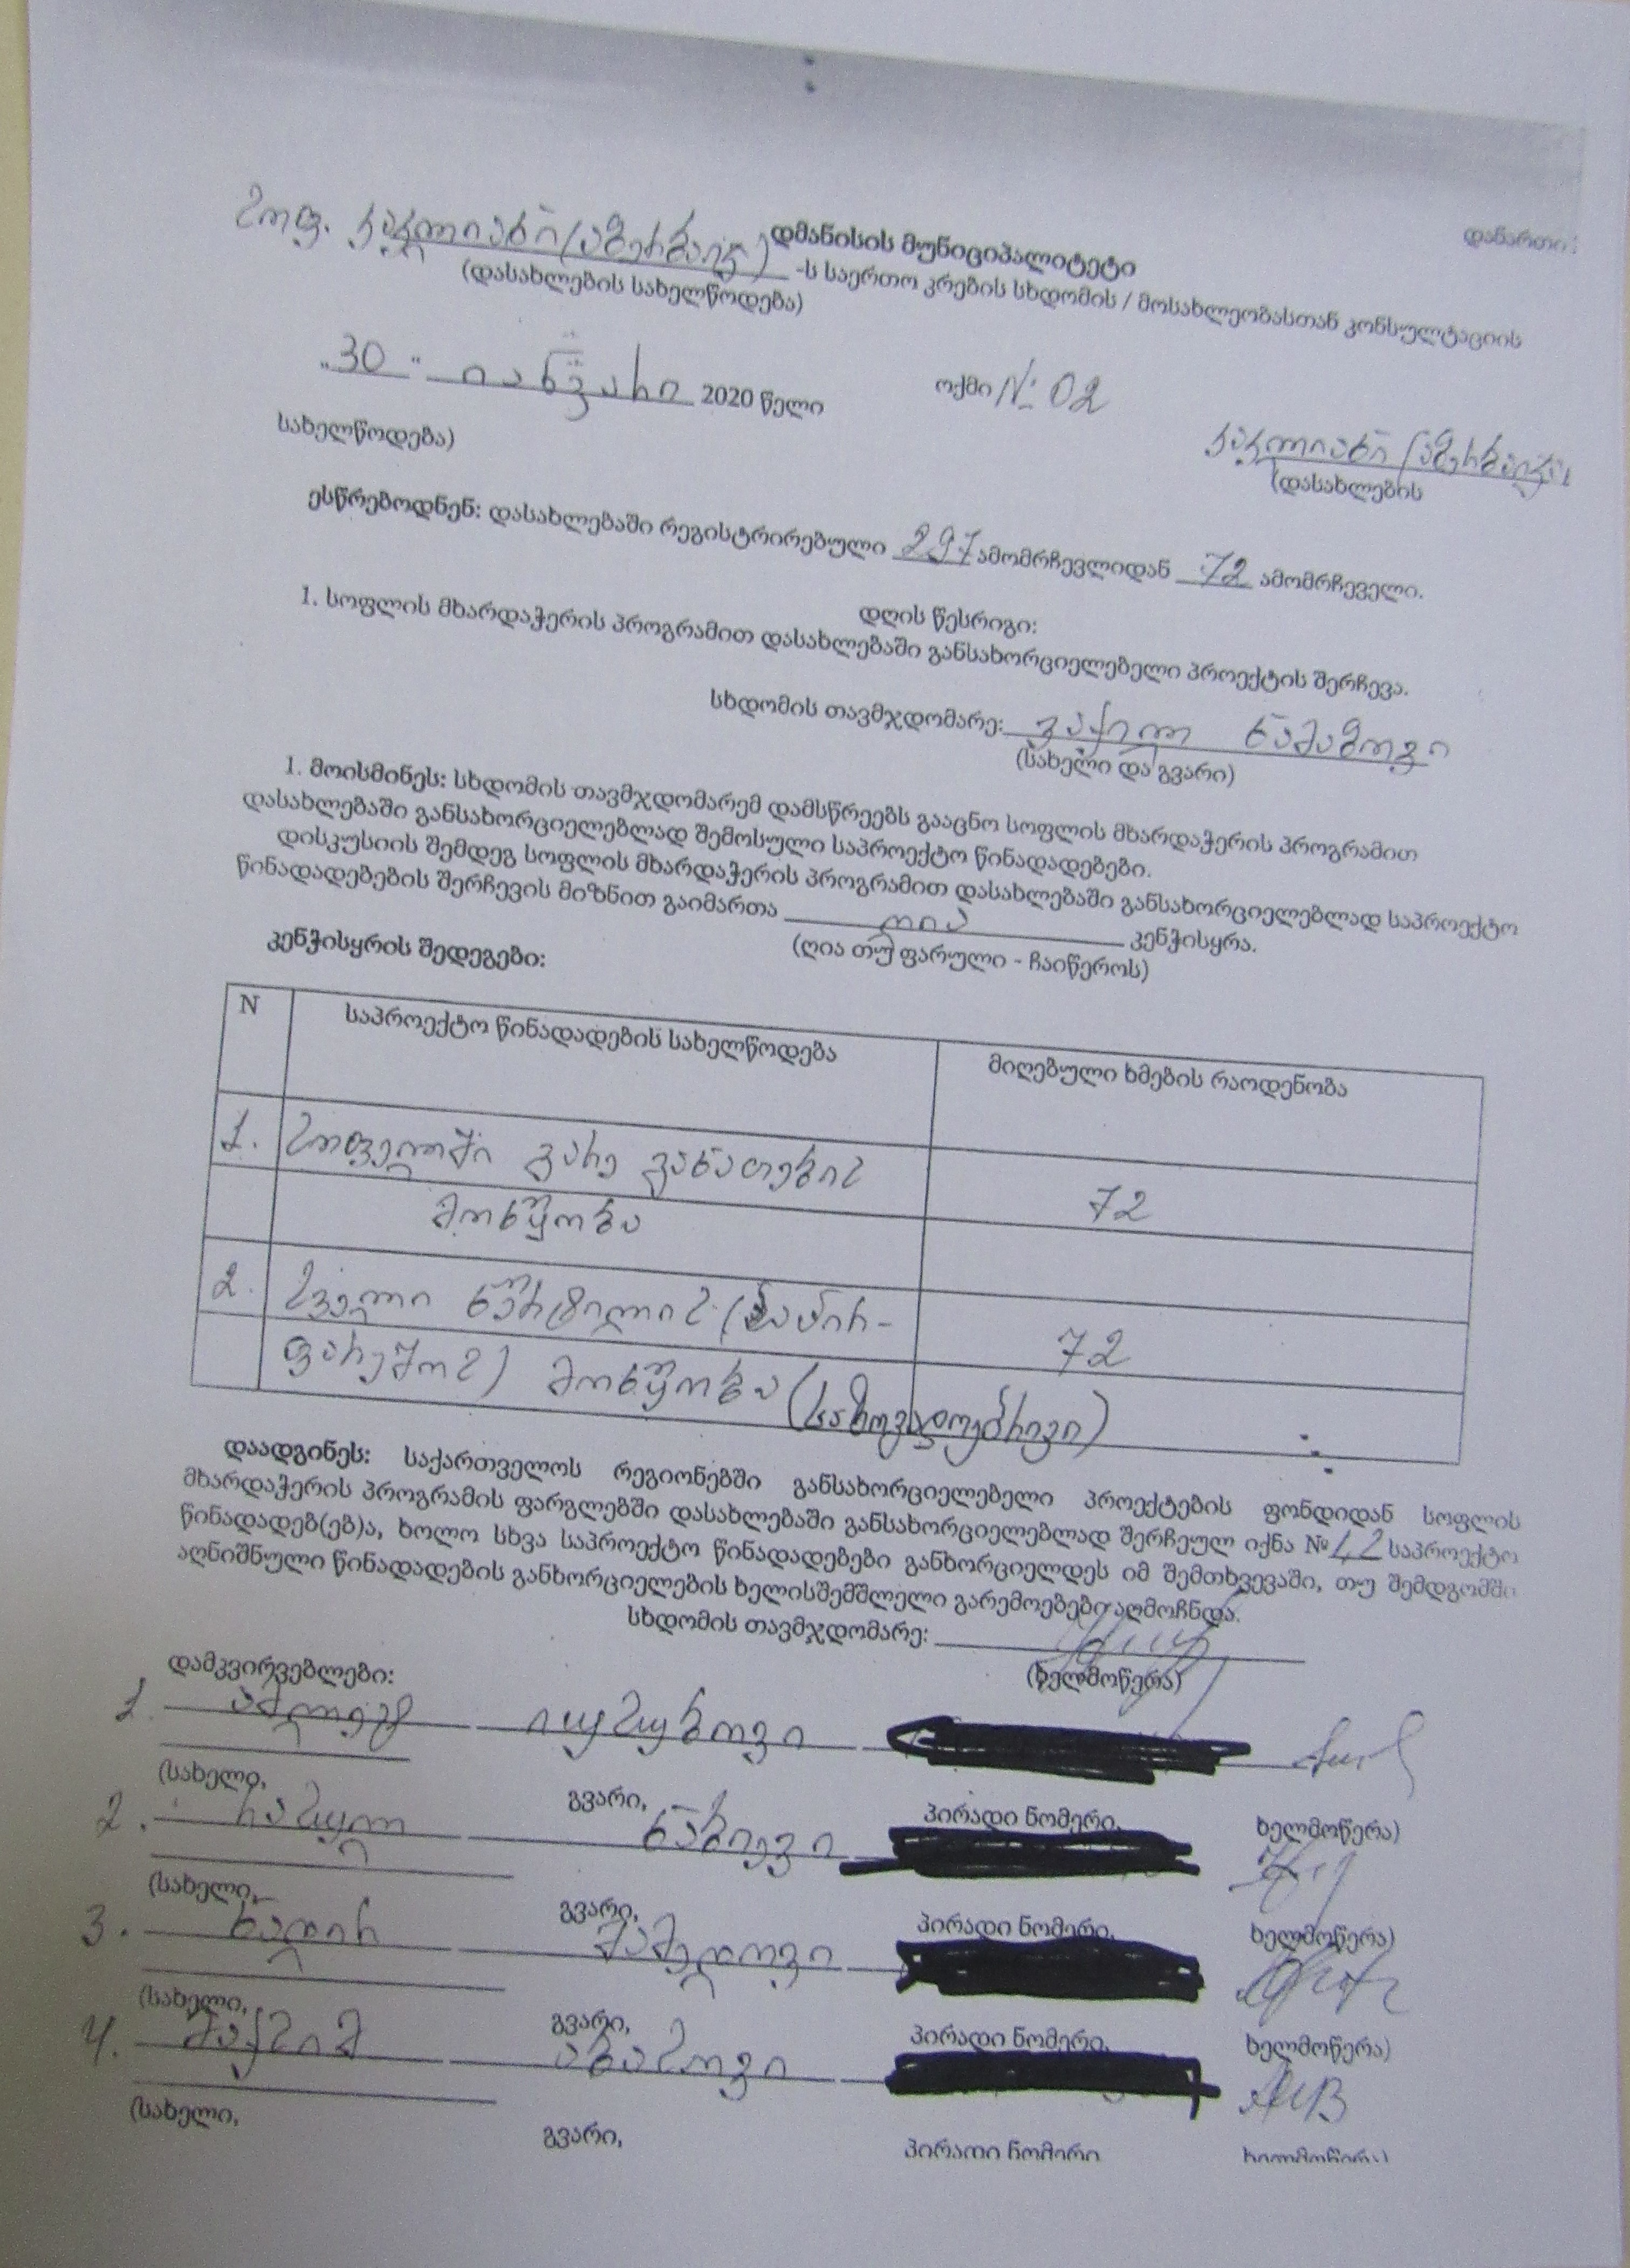 დანართი
დმანისის მუნიციპალიტეტი
სოფ. კაკლიანი (აზერბაიჯ.) -ს საერთო კრების სხდომის / მოსახლეობასთან კონსულტაციის
(დასახლების სახელწოდება)
„30" იანვარი 2020 წელი ოქმი №: 02
კაკლიანი (აზერბაიჯ.)
სახელწოდება) (დასახლების
ესწრებოდნენ: დასახლებაში რეგისტრირებული 297 ამომრჩევლიდან 72 ამომრჩეველი.
დღის წესრიგი:
1. სოფლის მხარდაჭერის პროგრამით დასახლებაში განსახორციელებელი პროექტის შერჩევა.
სხდომის თავმჯდომარე: ვაქილ ნამაზოვი
(სახელი და გვარი)
1. მოისმინეს: სხდომის თავმჯდომარემ დამსწრეებს გააცნო სოფლის მხარდაჭერის პროგრამით
დასახლებაში განსახორციელებლად შემოსული საპროექტო წინადადებები.
დისკუსიის შემდეგ სოფლის მხარდაჭერის პროგრამით დასახლებაში განსახორციელებლად საპროექტო
წინადადებების შერჩევის მიზნით გაიმართა ღია კენჭისყრა.
(ღია თუ ფარული - ჩაიწეროს)
კენჭისყრის შედეგები:
N საპროექტო წინადადების სახელწოდება მიღებული ხმების რაოდენობა
1. სოფელში გარე განათების
მოწყობა 72
2. სველი წერტილის (საპირ-
ფარეშოს) მოწყობა (საზოგადოებრივი) 72
დაადგინეს: საქართველოს რეგიონებში განსახორციელებელი პროექტების ფონდიდან სოფლის
მხარდაჭერის პროგრამის ფარგლებში დასახლებაში განსახორციელებლად შერჩეულ იქნა №1,2 საპროექტო
წინადადებ(ებ)ა, ხოლო სხვა საპროექტო წინადადებები განხორციელდეს იმ შემთხვევაში, თუ შემდგომში
აღნიშნული წინადადების განხორციელების ხელისშემშლელი გარემოებები აღმოჩნდა.
სხდომის თავმჯდომარე:
(ხელმოწერა)
დამკვირვებლები:
1. იუსუბოვი
(სახელი, გვარი, პირადი ნომერი, ხელმოწერა)
2. რასულ ნაბიევი
(სახელი, გვარი, პირადი ნომერი, ხელმოწერა)
3. ნადირ მამედოვი
(სახელი, გვარი, პირადი ნომერი, ხელმოწერა)
4. მაქსიმ აბასოვი
(სახელი, გვარი, პირადი ნომერი ხელმოწერა)